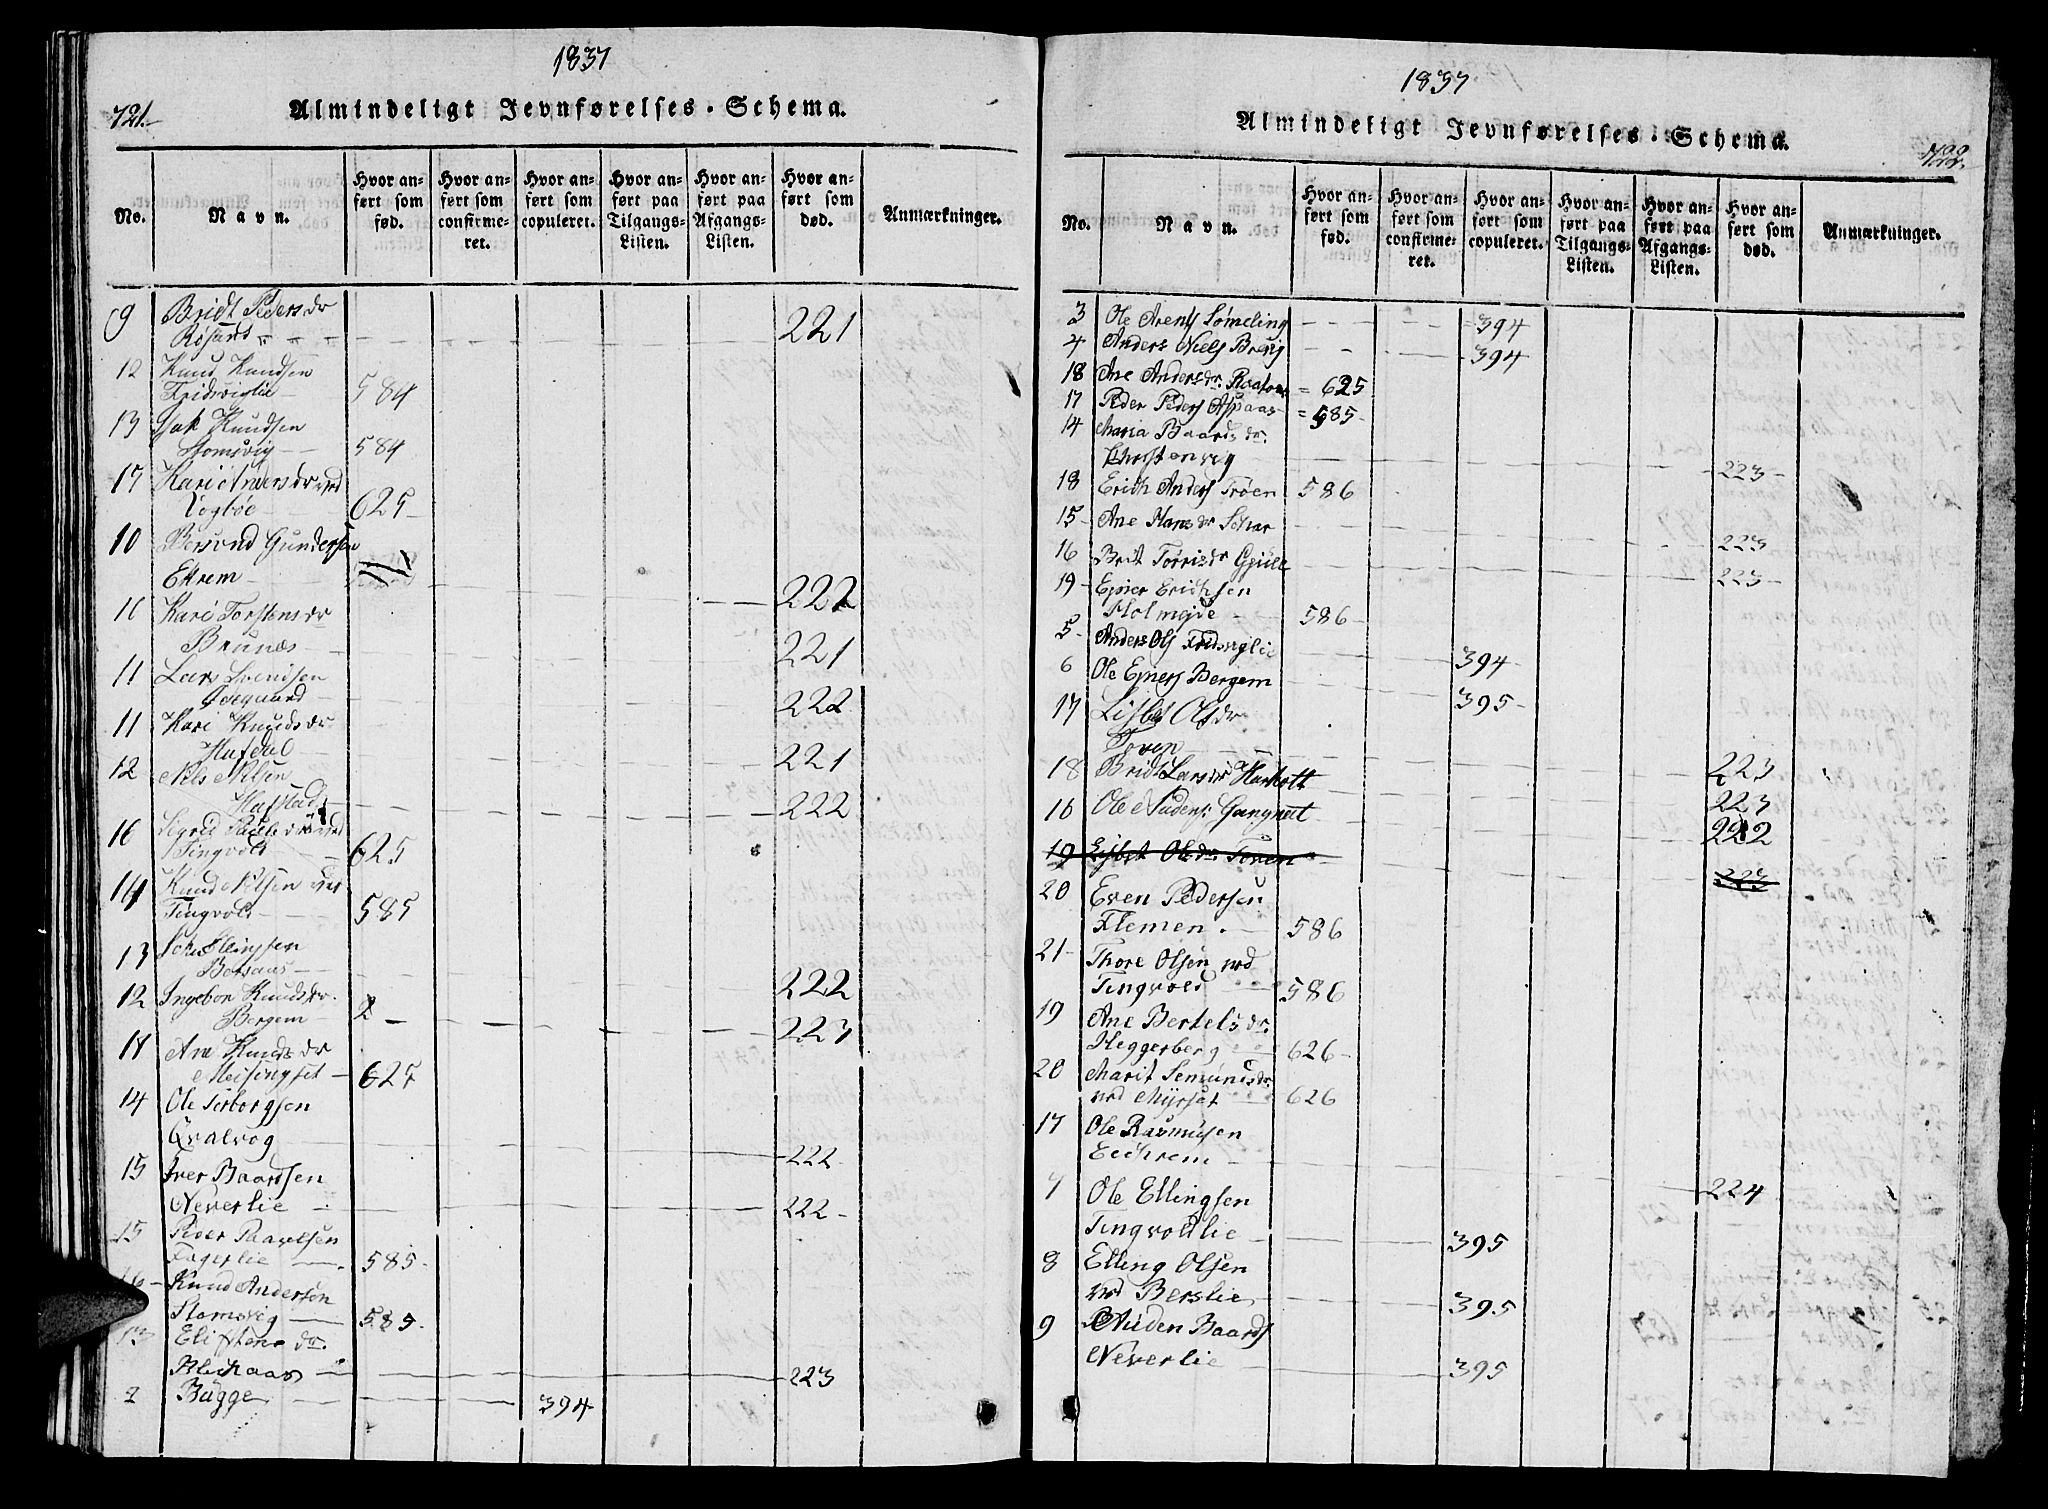 1837
721.
Almindeligt Jevnførelses-Schema.
No.
Navn.
Hvor an-
ført som
fød.
Hvor an-
ført som
confirme-
ret.
Hvor an-
ført som
copuleret.
Hvor an-
ført paa
Tilgangs-
Listen.
Hvor an-
ført paa
Afgangs-
Listen.
Hvor an-
ført som
død.
Anmærkninger.
9 Bridt Peders dr
Røsand 221
12 Knud Knudsen
Fridsviglie 584
13 Isak Knudsen
Stomsvig 584
17 Kari Anders dr ved
Vogbøe 625
10 Bersvend Gundersen
Ekrem 222
10 Kari Torstens dr
Brunæs 221
11 Lars Svendsen
222
11 Kari Knuds dr
Hafdal 221
12 Nils Nilsen
Hafstad 222
16 Sigrid Pauls dr ved
Tingvold 625
14 Knud Nilsen ved
Tingvold 585
13 Ellingsen
222
12 Ingebor Knuds dr.
Bergem 2 223
17 Ane Knuds dr
Meisingset 625
14 Ole Torborgsen
Qvalvog 222
15 Iver Baardsen
Neverlie 222
15 Peder Paavelsen
Fagerlie 585
16 Knud Andersen
Stomsvig 585
13 dr.
223
2 Bugge 394
1837
722.
Almindeligt Jevnførelses-Schema.
No.
Navn.
Hvor an-
ført som
fød.
Hvor an-
ført som
confirme-
ret.
Hvor an-
ført som
copuleret.
Hvor an-
ført paa
Tilgangs-
Listen.
Hvor an-
ført paa
Afgangs-
Listen.
Hvor an-
ført som
død.
Anmærkninger.
3 Ole Arents Sømeling 394
4 Anders Niels Brevig 394
18 Ane Anders dr. 625
17 Peder Peders Aspaas 585
14 Maria Baards dr.
Christenvig 223
18 Erich Anders Trøen 586
15 Ane Hans dr 223
16 Brit Torris dr Gjüll 223
19 Ejner Erichsen
Holmejde 586
5 Anders Ols Fridsviglie 394
6 Ole Ejners Bergem 395
17 Lisbet Ols dr
Toven 223
18 Bridt Lars dr 223
16 Ole Audens: Gangnæt 222
19 Lisbet Ols dr Toven 223
20 Even Pedersen
Flemen 586
21 Thore Olsen ved
Tingvold 586
19 Ane Bertels dr.
Heggerberg 626
20 Marit Semunds dr.
ved Myrset 626
17 Ole Rasmusen
Eichrem 224
7 Ole Ellingsen
Tingvoldlie 395
8 Elling Olsen
ved Berslie 395
9 Auden Baards
Neverlie 395